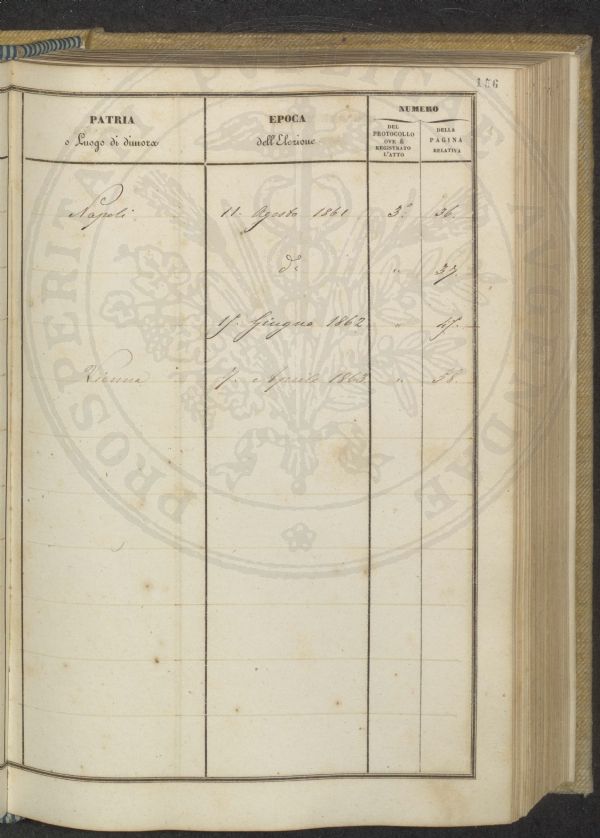 156
PATRIA
o Luogo di dimora
EPOCA
dell'Elezione
NUMERO
DEL
PROTOCOLLO
OVE È
REGISTRATO
L'ATTO
DELLA
PAGINA
RELATIVA
Napoli 11. Agosto 1861 3.° 36.
d.° " 37.
15. Giugno 1862 " 47.
Vienna 7. Aprile 1863. " 58.
PROSPERITATI PUBLICAE AUGENDAE